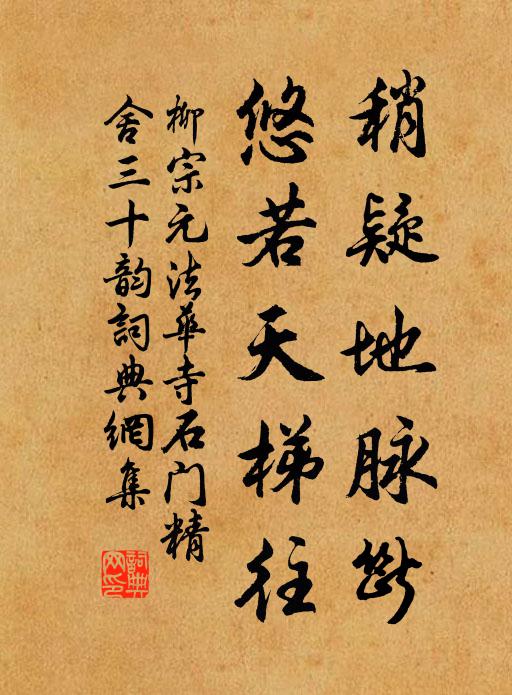 稍疑地脉斷
悠若天梯往
柳宗元法華寺石门精
舍三十韵詞典網集
詞典
网印